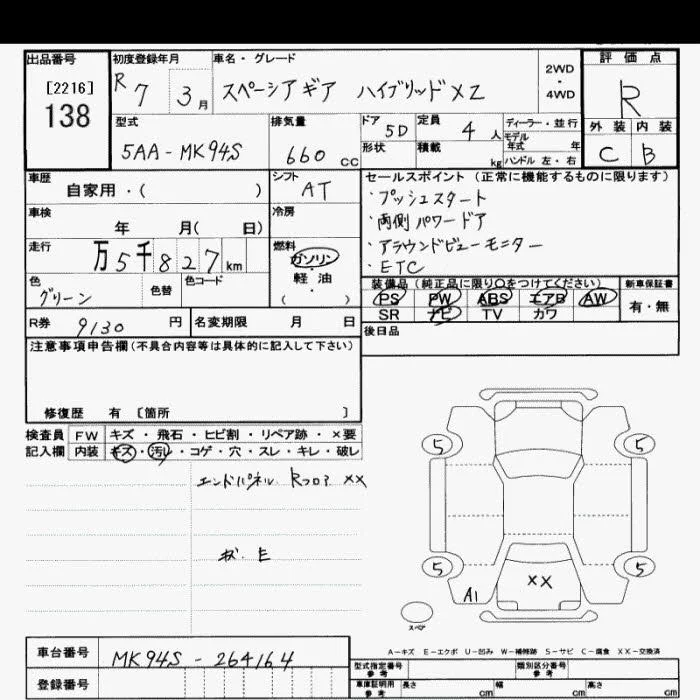 出品番号 初度登録年月 車名・グレード 評価点
[2216]
138
R7 3月 スペーシアギア ハイブリッドXZ 2WD・4WD R
型式 排気量 ドア 定員 ディーラー・並行 外装 内装
5AA-MK94S 660cc 5D 4人 モデル年式 年 C B
形状 積載 kg ハンドル 左・右
車歴 シフト セールスポイント(正常に機能するものに限ります)
自家用・( ) AT ・プッシュスタート
車検 冷房 ・両側パワードア
年 月( 日) ・アラウンドビューモニター
走行 燃料 ・ETC
万5千827km ガソリン
軽油
( ・ )
色 色替 色コード
グリーン
装備品(純正品に限り○をつけてください) 新車保証書
PS PW ABS エアB AW 有・無
SR ナビ TV カワ
R券 9130円 名変期限 月 日 後日品
注意事項申告欄(不具合内容等は具体的に記入して下さい)
修復歴 有 〔箇所 〕
検査員 FW キズ・飛石・ヒビ割・リペア跡・×要
記入欄 内装 キズ・汚レ・コゲ・穴・スレ・キレ・破レ
エンドパネル Rフロア XX
5 5
5 5
XX
A1
スペア
A-キズ E-エクボ U-凹み W-補修跡 S-サビ C-腐食 XX-交換済
車台番号 MK94S-264164
登録番号
型式指定番号 参考 類別区分番号 参考
車庫証明用 参考 長さ cm 幅 cm 高さ cm